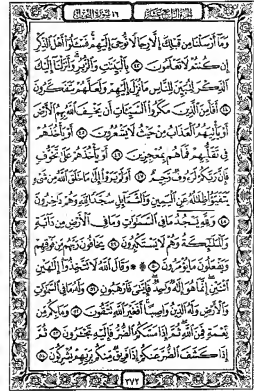 وَمَا أَرْسَلْنَا مِن قَبْلِكَ إِلَّا رِجَالًا نُّوحِي إِلَيْهِمْ فَسْـَٔلُوا أَهْلَ الذِّكْرِ
إِن كُنتُمْ لَا تَعْلَمُونَ ٤٣ بِالْبَيِّنَـٰتِ وَالزُّبُرِ وَأَنزَلْنَا إِلَيْكَ
الذِّكْرَ لِتُبَيِّنَ لِلنَّاسِ مَا نُزِّلَ إِلَيْهِمْ وَلَعَلَّهُمْ يَتَفَكَّرُونَ
٤٤ أَفَأَمِنَ الَّذِينَ مَكَرُوا السَّيِّـَٔاتِ أَن يَخْسِفَ اللَّهُ بِهِمُ الْأَرْضَ
أَوْ يَأْتِيَهُمُ الْعَذَابُ مِنْ حَيْثُ لَا يَشْعُرُونَ ٤٥ أَوْ يَأْخُذَهُمْ
فِي تَقَلُّبِهِمْ فَمَا هُم بِمُعْجِزِينَ ٤٦ أَوْ يَأْخُذَهُمْ عَلَىٰ تَخَوُّفٍ
فَإِنَّ رَبَّكُمْ لَرَءُوفٌ رَّحِيمٌ ٤٧ أَوَلَمْ يَرَوْا إِلَىٰ مَا خَلَقَ اللَّهُ مِن شَيْءٍ
يَتَفَيَّؤُا ظِلَـٰلُهُ عَنِ الْيَمِينِ وَالشَّمَائِلِ سُجَّدًا لِّلَّهِ وَهُمْ دَاخِرُونَ
٤٨ وَلِلَّهِ يَسْجُدُ مَا فِي السَّمَـٰوَاتِ وَمَا فِي الْأَرْضِ مِن دَابَّةٍ
وَالْمَلَـٰئِكَةُ وَهُمْ لَا يَسْتَكْبِرُونَ ٤٩ يَخَافُونَ رَبَّهُم مِّن فَوْقِهِمْ
وَيَفْعَلُونَ مَا يُؤْمَرُونَ ۩ ٥٠ ۞ وَقَالَ اللَّهُ لَا تَتَّخِذُوا إِلَـٰهَيْنِ
اثْنَيْنِ إِنَّمَا هُوَ إِلَـٰهٌ وَاحِدٌ فَإِيَّـٰيَ فَارْهَبُونِ ٥١ وَلَهُ مَا فِي السَّمَـٰوَاتِ
وَالْأَرْضِ وَلَهُ الدِّينُ وَاصِبًا أَفَغَيْرَ اللَّهِ تَتَّقُونَ ٥٢ وَمَا بِكُم مِّن
نِّعْمَةٍ فَمِنَ اللَّهِ ثُمَّ إِذَا مَسَّكُمُ الضُّرُّ فَإِلَيْهِ تَجْـَٔرُونَ ٥٣ ثُمَّ
إِذَا كَشَفَ الضُّرَّ عَنكُمْ إِذَا فَرِيقٌ مِّنكُم بِرَبِّهِمْ يُشْرِكُونَ ٥٤
٢٧٢